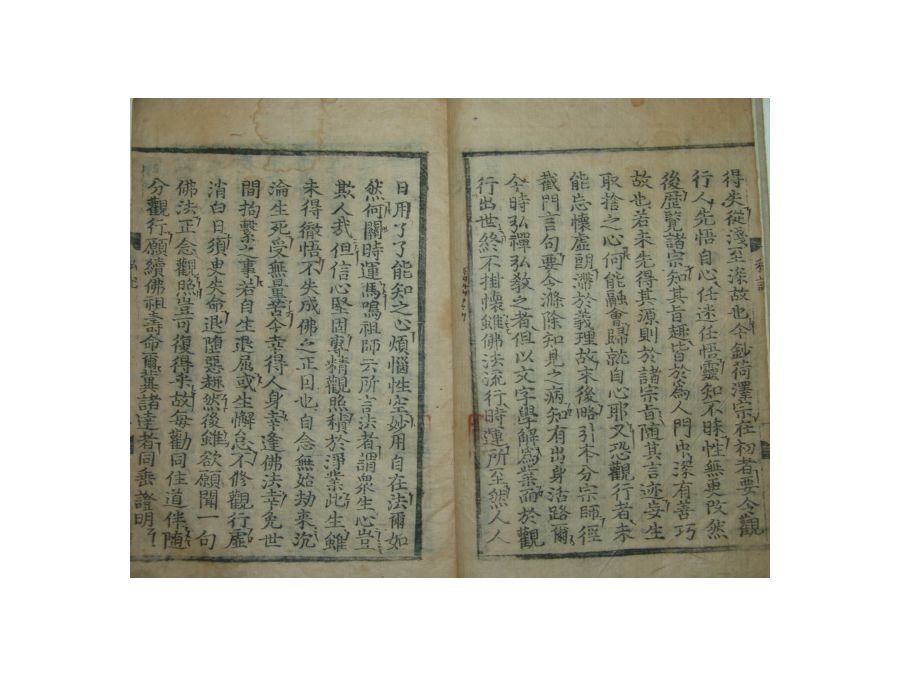 得失從淺至深故也今鈔荷澤宗在初者要令觀
行人先悟自心任迷任悟靈知不昧性無更改然
後歷覽諸宗知其旨趣皆於爲人門中深有善巧
故也若未先得其源則於諸宗旨隨其言迹妄生
取捨之心何能融會歸就自心耶又恐觀行者未
能忘懷虛朗滯於義理故末後略引本分宗師徑
截門言句要令滌除知見之病知有出身活路爾
今時弘禪弘敎之者但以文字學解爲業而於觀
行出世終不掛懷雖佛法流行時運所至然人人
日用了了能知之心煩惱性空妙用自在法爾如
然何關時運馮鳴祖師云所言法者謂衆生心豈
欺人哉但信心堅固專精觀照積於淨業此生雖
未得徹悟不失成佛之正因也自念無始劫來沉
淪生死受無量苦今幸得人身幸逢佛法幸免世
間拘繫之事若自生退屈或生懈怠不修觀行虛
消白日須臾失命退墮惡趣然後雖欲願聞一句
佛法正念觀照豈可復得乎故每勸同住道伴隨
分觀行願續佛祖壽命爾冀諸達者同垂證明